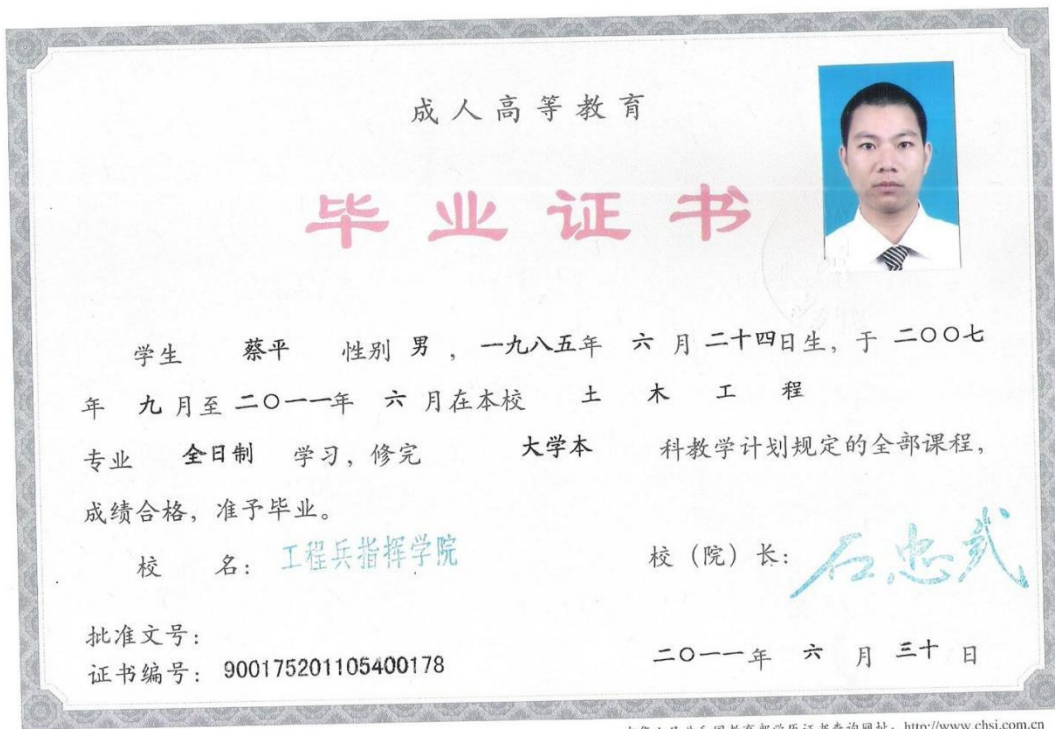 成人高等教育
毕业证书
学生 蔡平 性别 男 ，一九八五年 六 月 二十四日生，于 二〇〇七
年 九 月至 二〇一一年 六 月在本校 土 木 工 程
专业 全日制 学习，修完 大学本 科教学计划规定的全部课程，
成绩合格，准予毕业。
校 名：工程兵指挥学院 校（院）长：石忠武
批准文号：
证书编号：900175201105400178 二〇一一年 六 月 三十 日
中华人民共和国教育部学历证书查询网址：http://www.chsi.com.cn